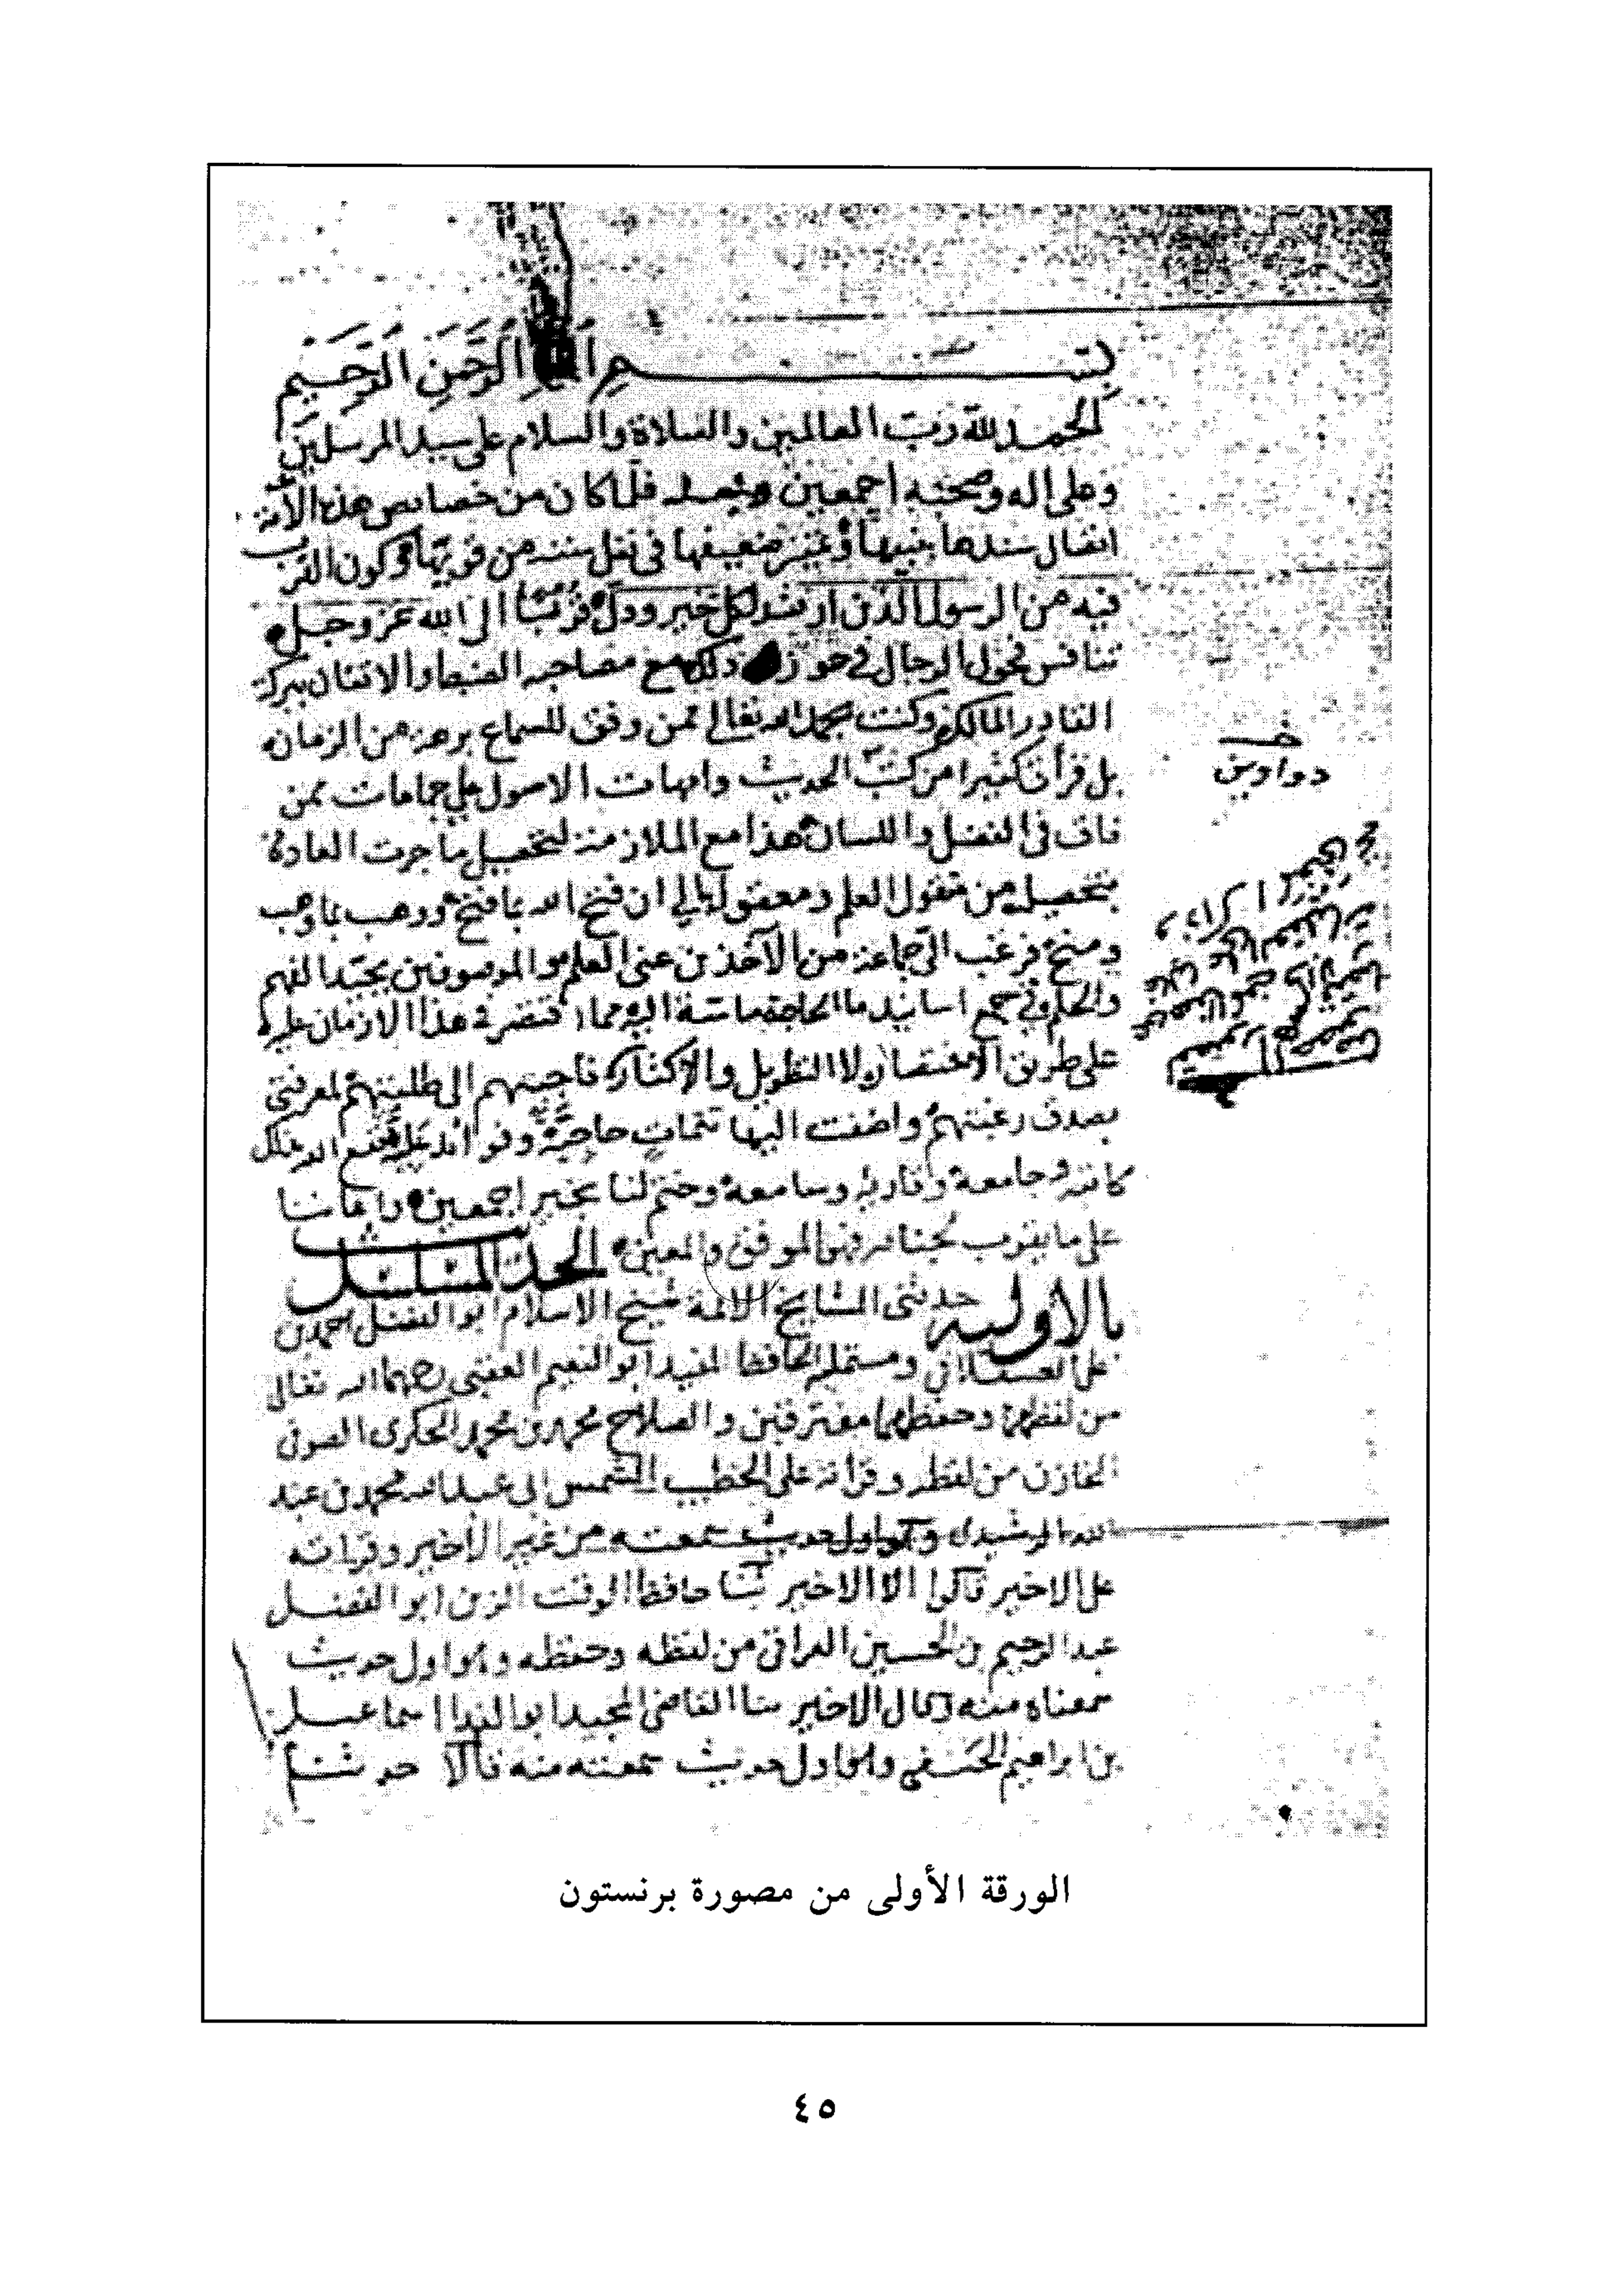 بسم الله الرحمن الرحيم
الحمد لله رب العالمين والصلاة والسلام على سيد المرسلين
وعلى اله وصحبه اجمعين وبعد فلما كان من خصائص هذه الأمة
اتصال سندها بنبيها وتمييز ضعيفها في نقل سنته من قويها وكون القرب
فيه من الرسول الذي ارشد لكل خير ودل قربا الى الله عز وجل
تنافس فحول الرجال في حوز ذلك مع مصاحبة الضبط والاتقان ببركة
القادر المالك وكنت بحمد الله تعالى ممن وفق للسماع برهة من الزمان
بل قرأت كثيرا من كتب الحديث وامهات الاصول على جماعات ممن
فاق في الفضل واللسان هذا مع الملازمة لتحصيل ما جرت العادة
بتحصيله من منقول العلم ومعقوله الى ان فتح الله بما فتح ووهب بما وهب
ومنح فرغب الي جماعة من الآخذين عني العلم والموصوفين بجيد الفهم
والحلم في جمع اسانيد ما الحاجة ماسة اليه مما اقتصر في هذا الازمان عليه
على طريق الاختصار لا التطويل والاكثار فاجبتهم الى طلبتهم لمعرفتي
بصدق رغبتهم واضفت اليها تتمات وفوائد نفع الله بذلك
كاتبه وجامعه وقاريه وسامعه وختم لنا بخير اجمعين واعاننا
على ما يقرب لجنابه فهو الموفق والمعين الحديث المسلسل
بالأولية حدثني المشايخ الائمة شيخ الاسلام ابو الفضل احمد بن
علي العسقلاني ومستمليه الحافظ المفيد ابو النعيم العقبي رحمهما الله تعالى
من لفظهما وحفظهما مفترقين والصلاح محمد بن محمد الحكري الصوفي
الخازن من لفظه وقراءة على الخطيب الشمس ابي عبد الله محمد بن عبد
الله الرشيدي وهو اول حديث سمعته من غير الاخير وقراته
على الاخير قالوا الا الاخير ثنا حافظ الوقت الزين ابو الفضل
عبد الرحيم بن الحسين العراقي من لفظه وحفظه وهو اول حديث
سمعناه منه وقال الاخير ثنا القاضي المجد ابو الفدا اسماعيل
بن ابراهيم الحنفي وهو اول حديث سمعته منه قالا حدثنا
دواوين
الورقة الأولى من مصورة برنستون
٤٥